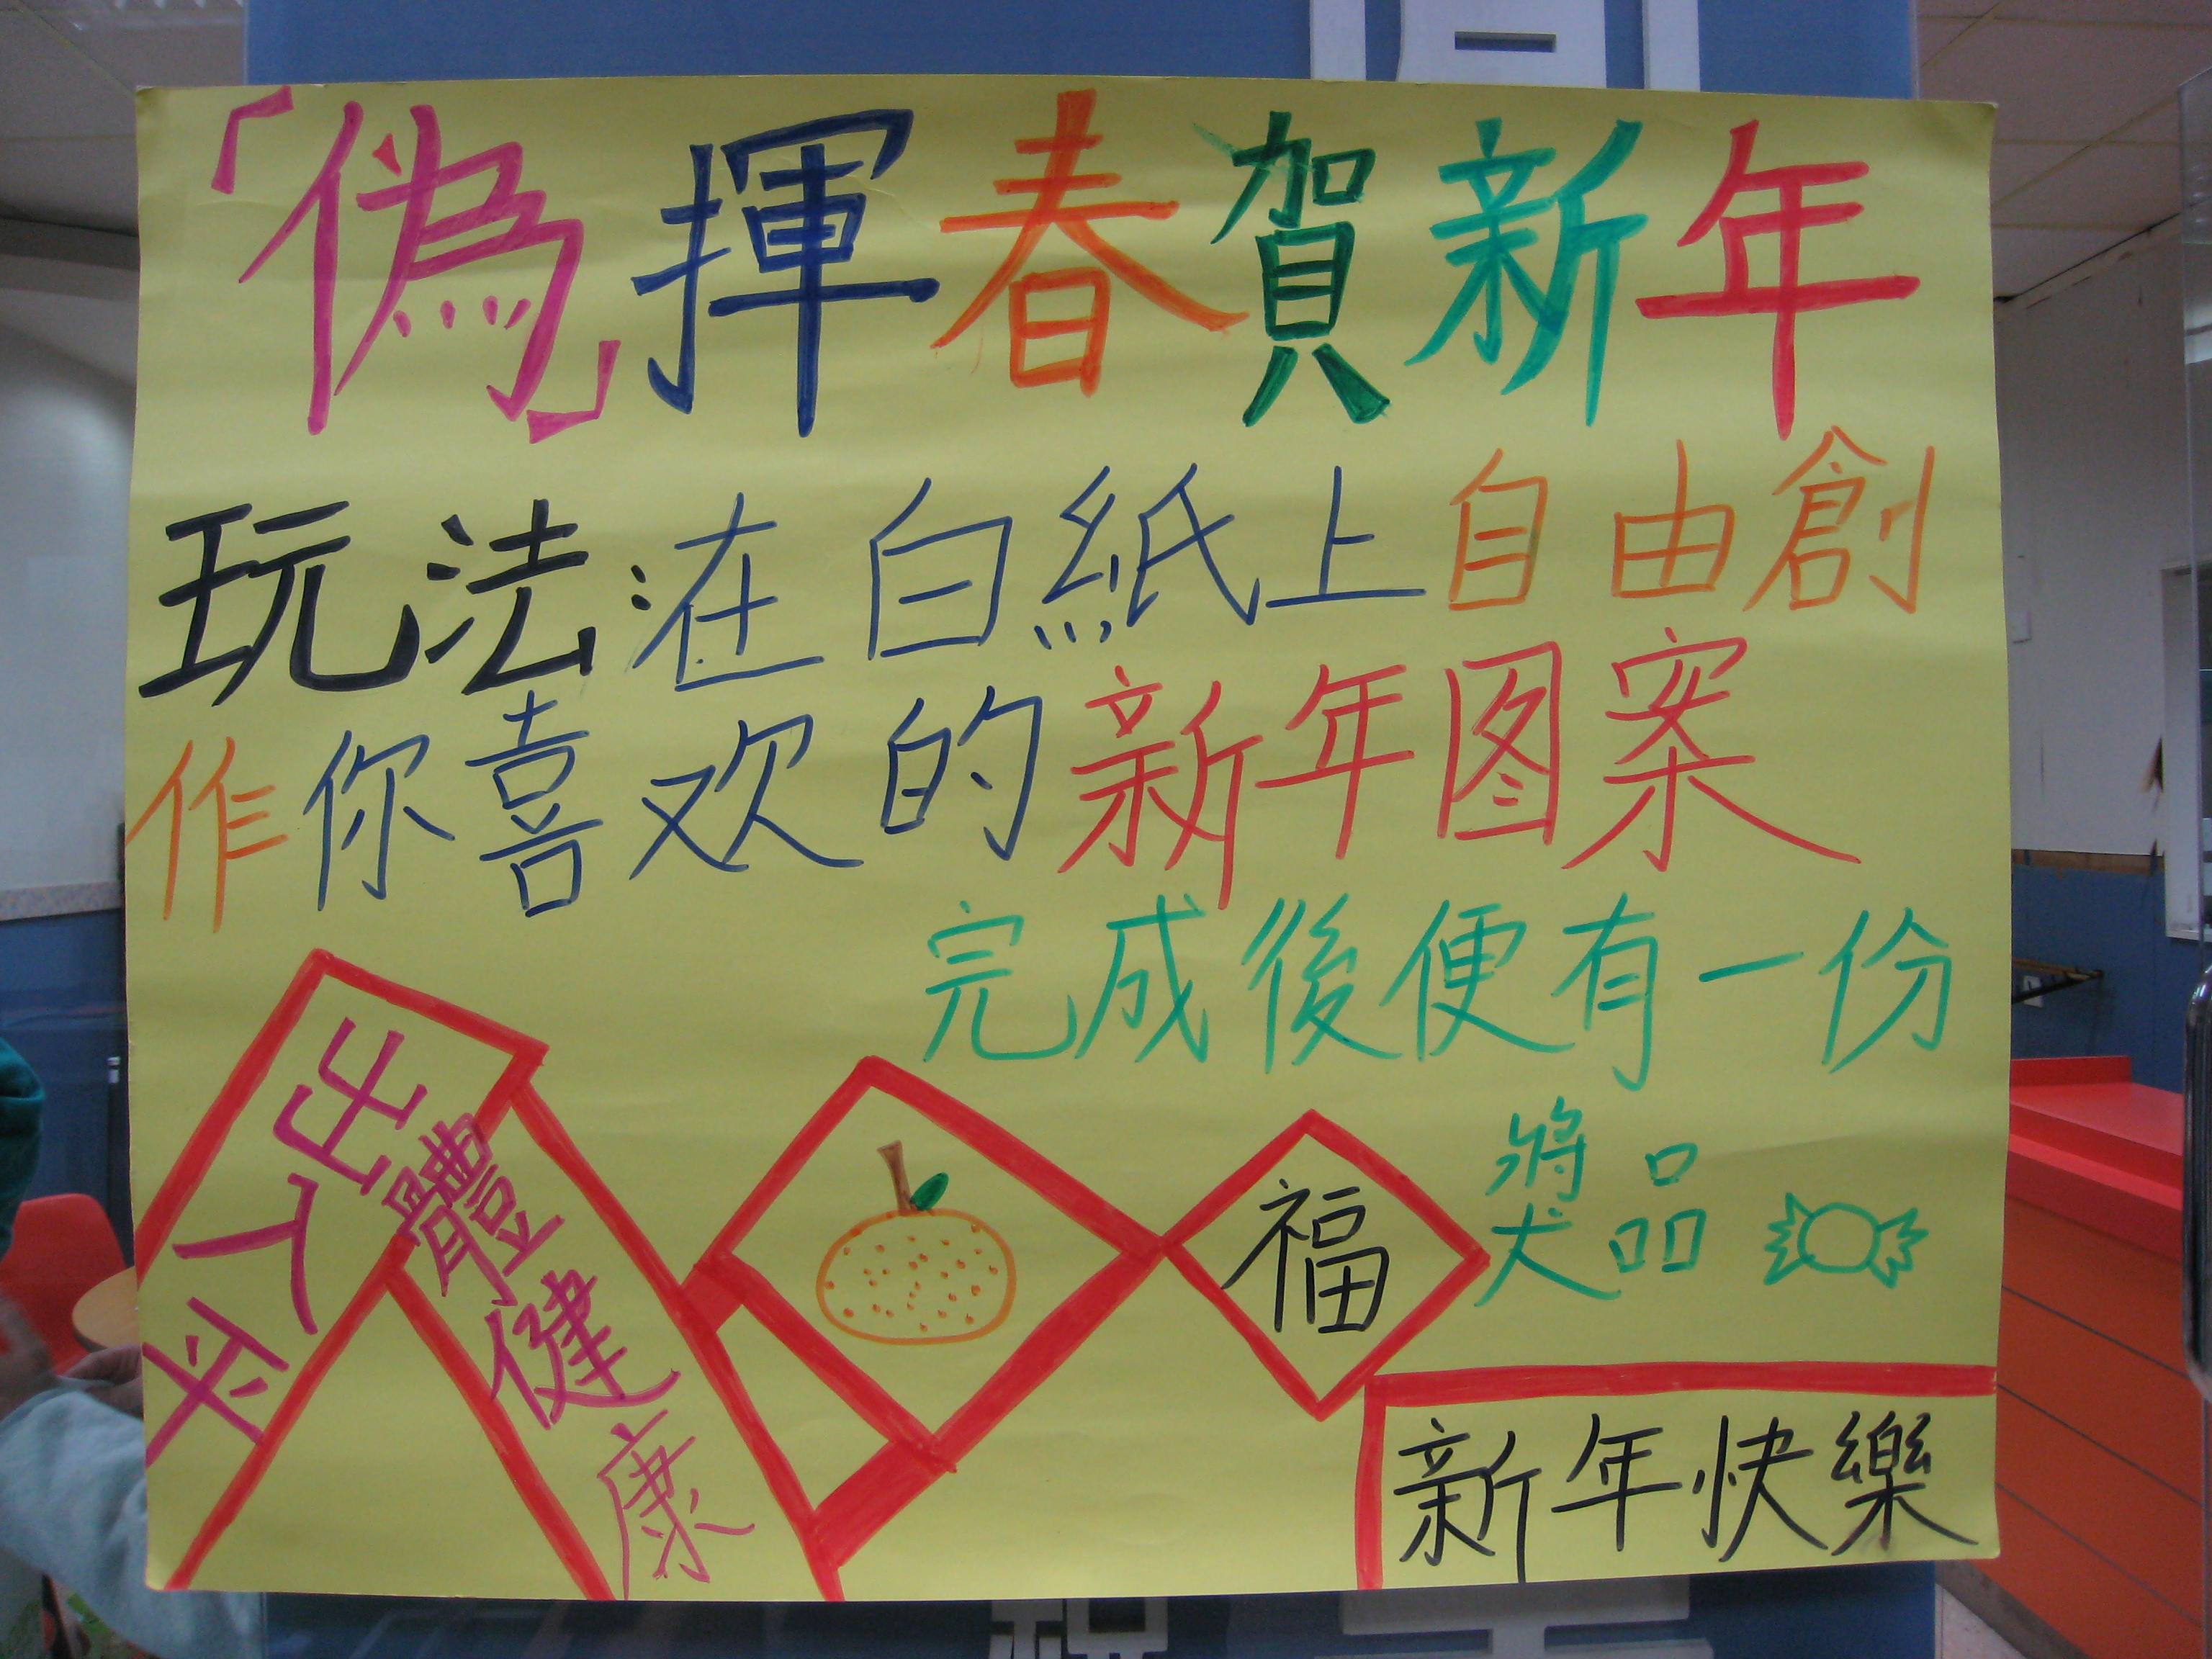 「偽」揮春賀新年
玩法:在白紙上自由創
作你喜欢的新年图案
完成後便有一份
獎品
出入平
體健康
福
新年快樂